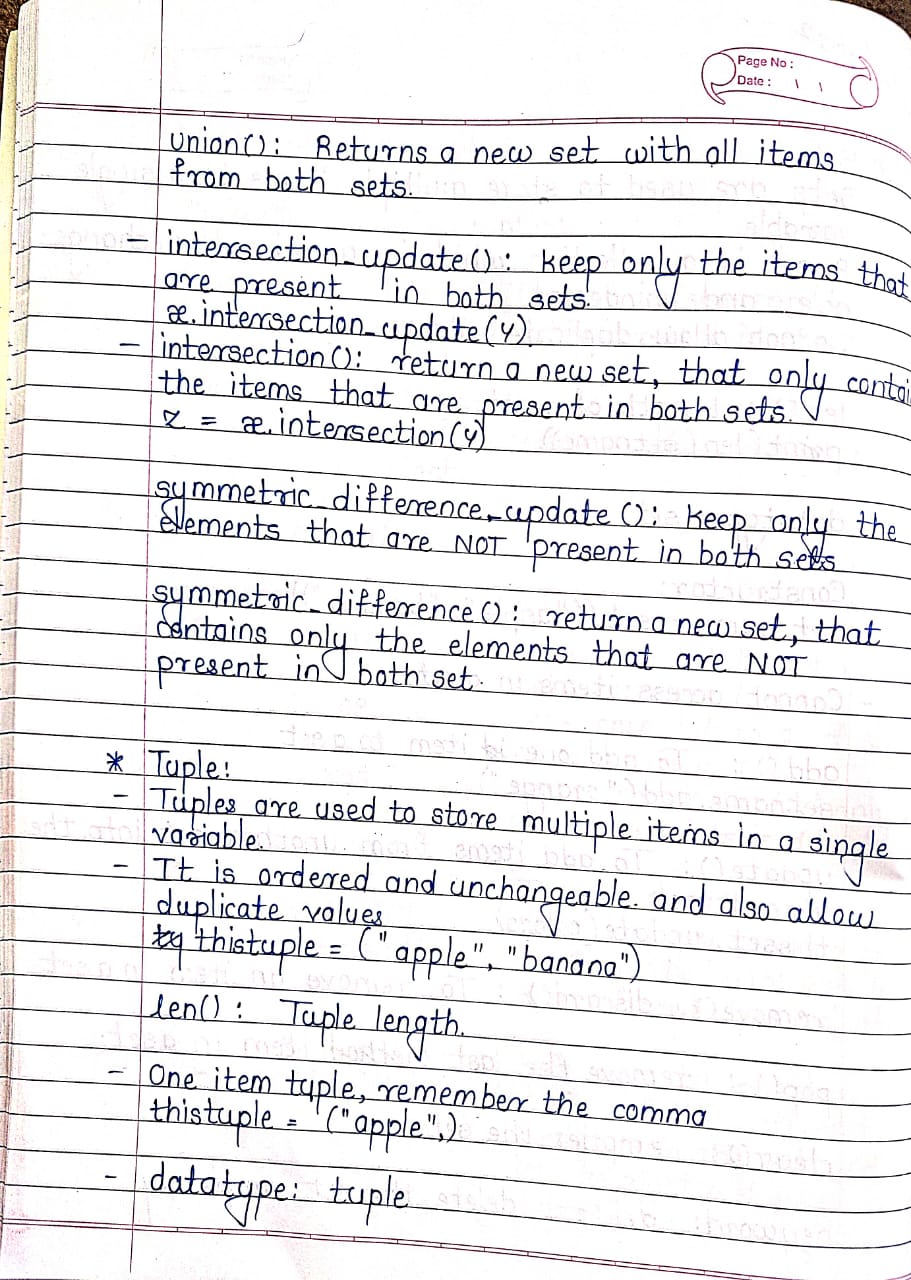 Page No :
Date :
union(): Returns a new set with all items
from both sets.
- intersection_update(): keep only the items that
are present in both sets.
x.intersection_update(y)
- intersection(): return a new set, that only contai
the items that are present in both sets.
z = x.intersection(y)
symmetric_difference_update(): keep only the
elements that are NOT present in both sets
symmetric_difference(): return a new set, that
contains only the elements that are NOT
present in both set.
* Tuple:
- Tuples are used to store multiple items in a single
variable.
- It is ordered and unchangeable. and also allow
duplicate values
thistuple = ("apple", "banana")
len(): Tuple length.
- One item tuple, remember the comma
thistuple = ("apple",)
- datatype: tuple